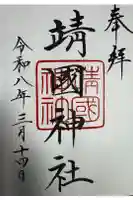 奉拝
靖國神社
令和八年三月十四日
靖國神社